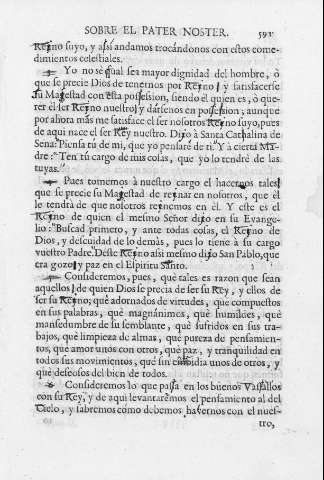 SOBRE EL PATER NOSTER. 591
Reyno suyo, y assi andamos trocandonos con estos come-
dimientos celestiales.
Yo no sè qual sea mayor dignidad del hombre, ò
que se precie Dios de tenernos por Reyno, y satisfacerse
su Magestad con esta possession, siendo èl quien es, ò que-
rer èl ser Reyno nuestro, y darsenos en possession; aunque
por ahora màs me satisface el ser nosotros Reyno suyo, pues
de aqui nace el ser Rey nuestro. Dixo à Santa Cathalina de
Sena: Piensa tú de mi, que yo pensarè de ti. Y à cierta Ma-
dre: Ten tú cargo de mis cosas, que yo lo tendrè de las
tuyas.
Pues tomemos à nuestro cargo el hacernos tales,
que se precie su Magestad de reynar en nosotros, que èl
le tendrà de que nosotros reynemos en èl. Y este es el
Reyno de quien el mesmo Señor dixo en su Evange-
lio: Buscad primero, y ante todas cosas, el Reyno de
Dios, y descuidad de lo demàs, pues lo tiene à su cargo
vuestro Padre. Deste Reyno assi mesmo dixo San Pablo, que
era gozo, y paz en el Espiritu Santo.
Consideremos, pues, què tales es razon que sean
aquellos, de quien Dios se precia de ser su Rey, y ellos de
ser su Reyno; què adornados de virtudes, què compuestos
en sus palabras, què magnanimos, què humildes, què
mansedumbre de su semblante, què sufridos en sus tra-
bajos, què limpieza de almas, què pureza de pensamien-
tos, què amor unos con otros, què paz, y tranquilidad en
todos sus movimientos, què sin embidia unos de otros, y
què deseosos del bien de todos.
Consideremos lo que passa en los buenos Vassallos
con su Rey, y de aqui levantarèmos el pensamiento al del
Cielo, y sabrèmos como debemos havernos con el nues-
tro,